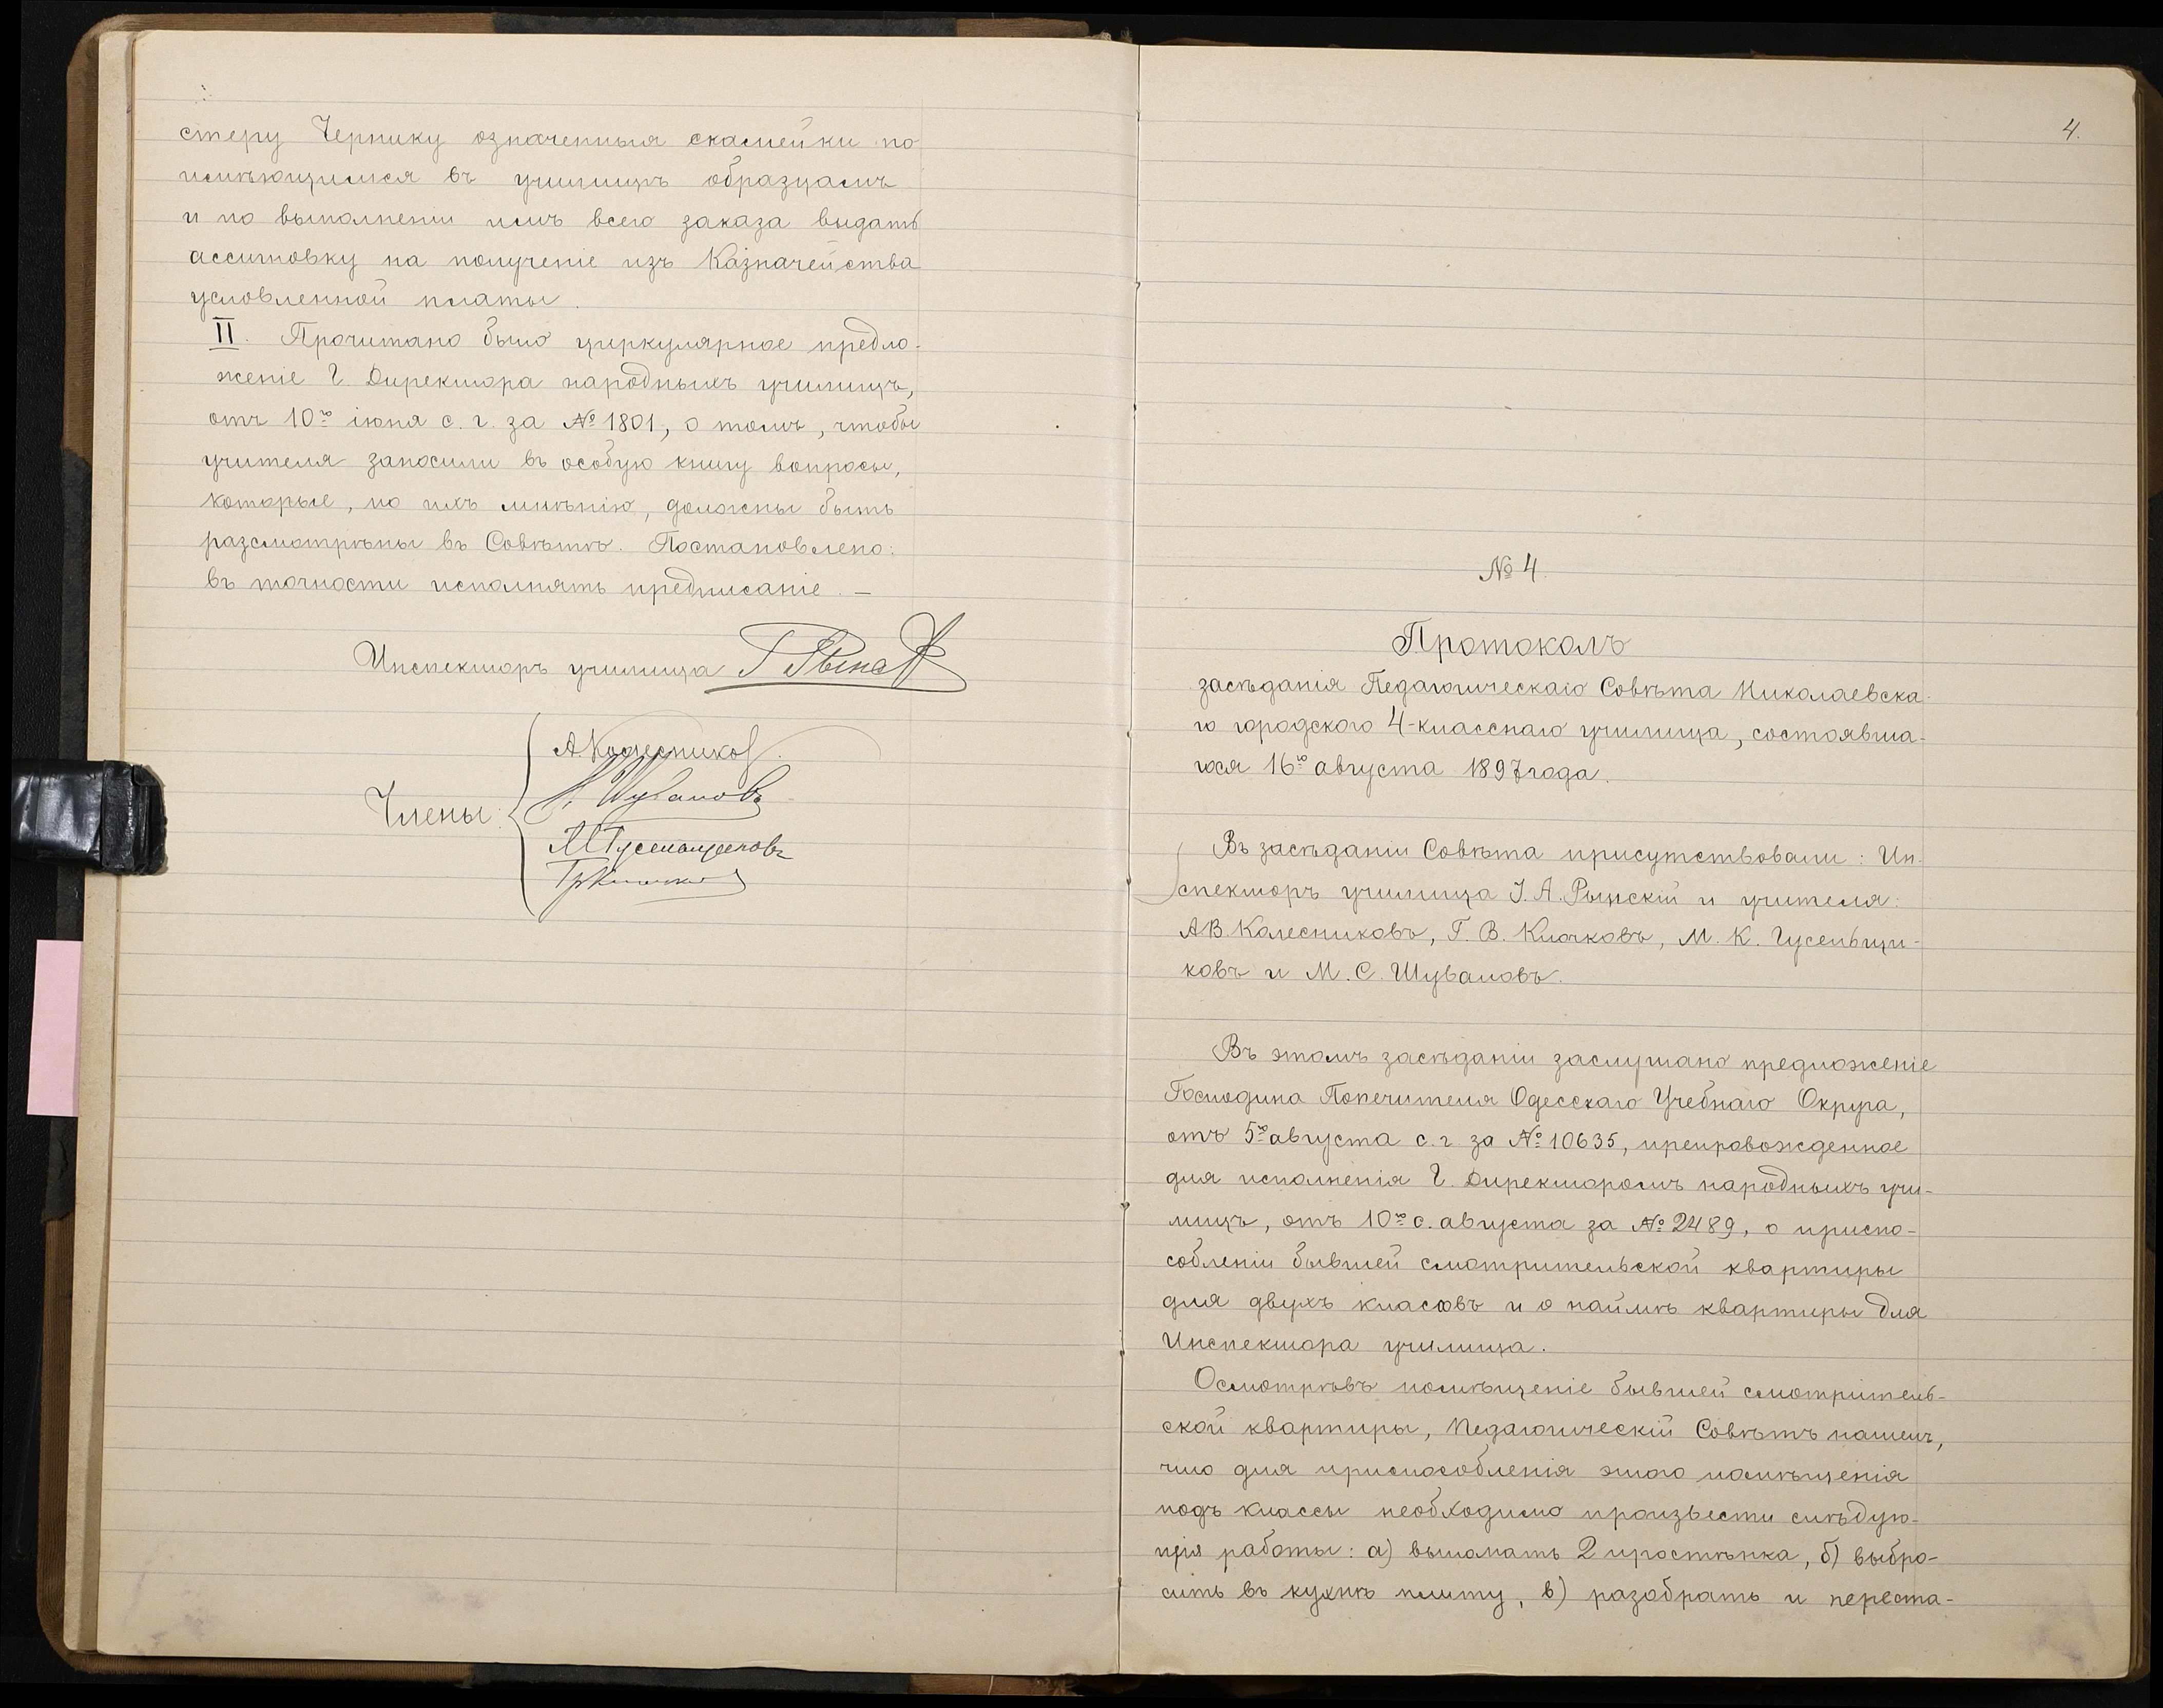 стеру Чернику означенныя скамейки по
имѣющимся въ училищѣ образцамъ
и по выполненіи имъ всего заказа выдать
ассигновку на полученіе изъ Казначейства
условленной платы.
II. Прочитано было циркулярное предло-
женіе Г. Директора народныхъ училищъ,
отъ 10го іюня с. г. за № 1801, о томъ, чтобы
учителя заносили въ особую книгу вопросы,
которые, по ихъ мнѣнію, должны быть
разсмотрѣны въ Совѣтѣ. Постановлено:
въ точности исполнять предписаніе. —
Инспекторъ училища
А. Колесников
Члены: Шувалов
М. Гусельщиковъ
Гр. Клочков
4.
№ 4.
Протоколъ
засѣданія Педагогическаго Совѣта Николаевска-
го городского 4-класснаго училища, состоявша-
гося 16го августа 1897 года.
Въ засѣданіи Совѣта присутствовали: Ин-
спекторъ училища І. А. Рынскій и учителя:
А.В. Колесниковъ, Г. В. Клочковъ, М. К. Гусельщи-
ковъ и М. С. Шуваловъ.
Въ этомъ засѣданіи заслушано предложеніе
Господина Попечителя Одесскаго Учебнаго Округа,
отъ 5го августа с. г. за № 10635, препровожденное
для исполненія Г. Директоромъ народныхъ учи-
лищъ, отъ 10го с. августа за № 2489, о приспо-
собленіи бывшей смотрительской квартиры
для двухъ класовъ и о наймѣ квартиры для
Инспектора училища.
Осмотрѣвъ помѣщеніе бывшей смотритель-
ской квартиры, Педагогическій Совѣтъ нашелъ,
что для приспособленія этого помѣщенія
подъ классы необходимо произвести слѣдую-
щія работы: а) выломать 2 простѣнка, б) выбро-
сить въ кухнѣ плиту, в) разобрать и переста-